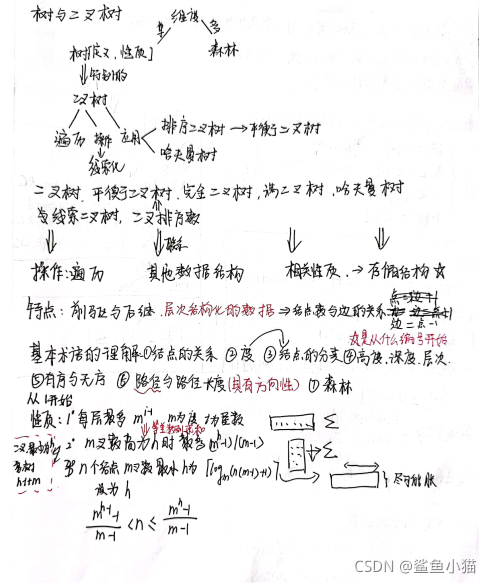 树与二叉树
维度
多
树[定义、性质]
森林
特别的
二叉树
遍历 操作 应用
线索化
排序二叉树→平衡二叉树
哈夫曼树
二叉树、平衡二叉树、完全二叉树、满二叉树、哈夫曼树
线索二叉树、二叉排序树
联系
操作:遍历 其他数据结构 相关性质 → 存储结构☆
特点:前驱与后继 层次结构化的数据⇒结点数与边的关系
边=点-1
这是从什么编号开始
基本术语的理解①结点的关系 ②度 ③结点的分支④高度、深度、层次
⑤有序与无序 ⑥路径与路径长度(具有方向性) ⑦森林
从1开始
性质:1° 每层最多 m^(i-1) m为度 i为层数 Σ
等差数列求和
2° m叉数高为h时 最多(m^h-1)/(m-1) Σ
3° n个结点m叉数最小h为⌈log_m(n(m-1)+1)⌉
h+m
设为h
(m^(h-1)-1)/(m-1) < n ≤ (m^h-1)/(m-1)
CSDN @鲨鱼小猫